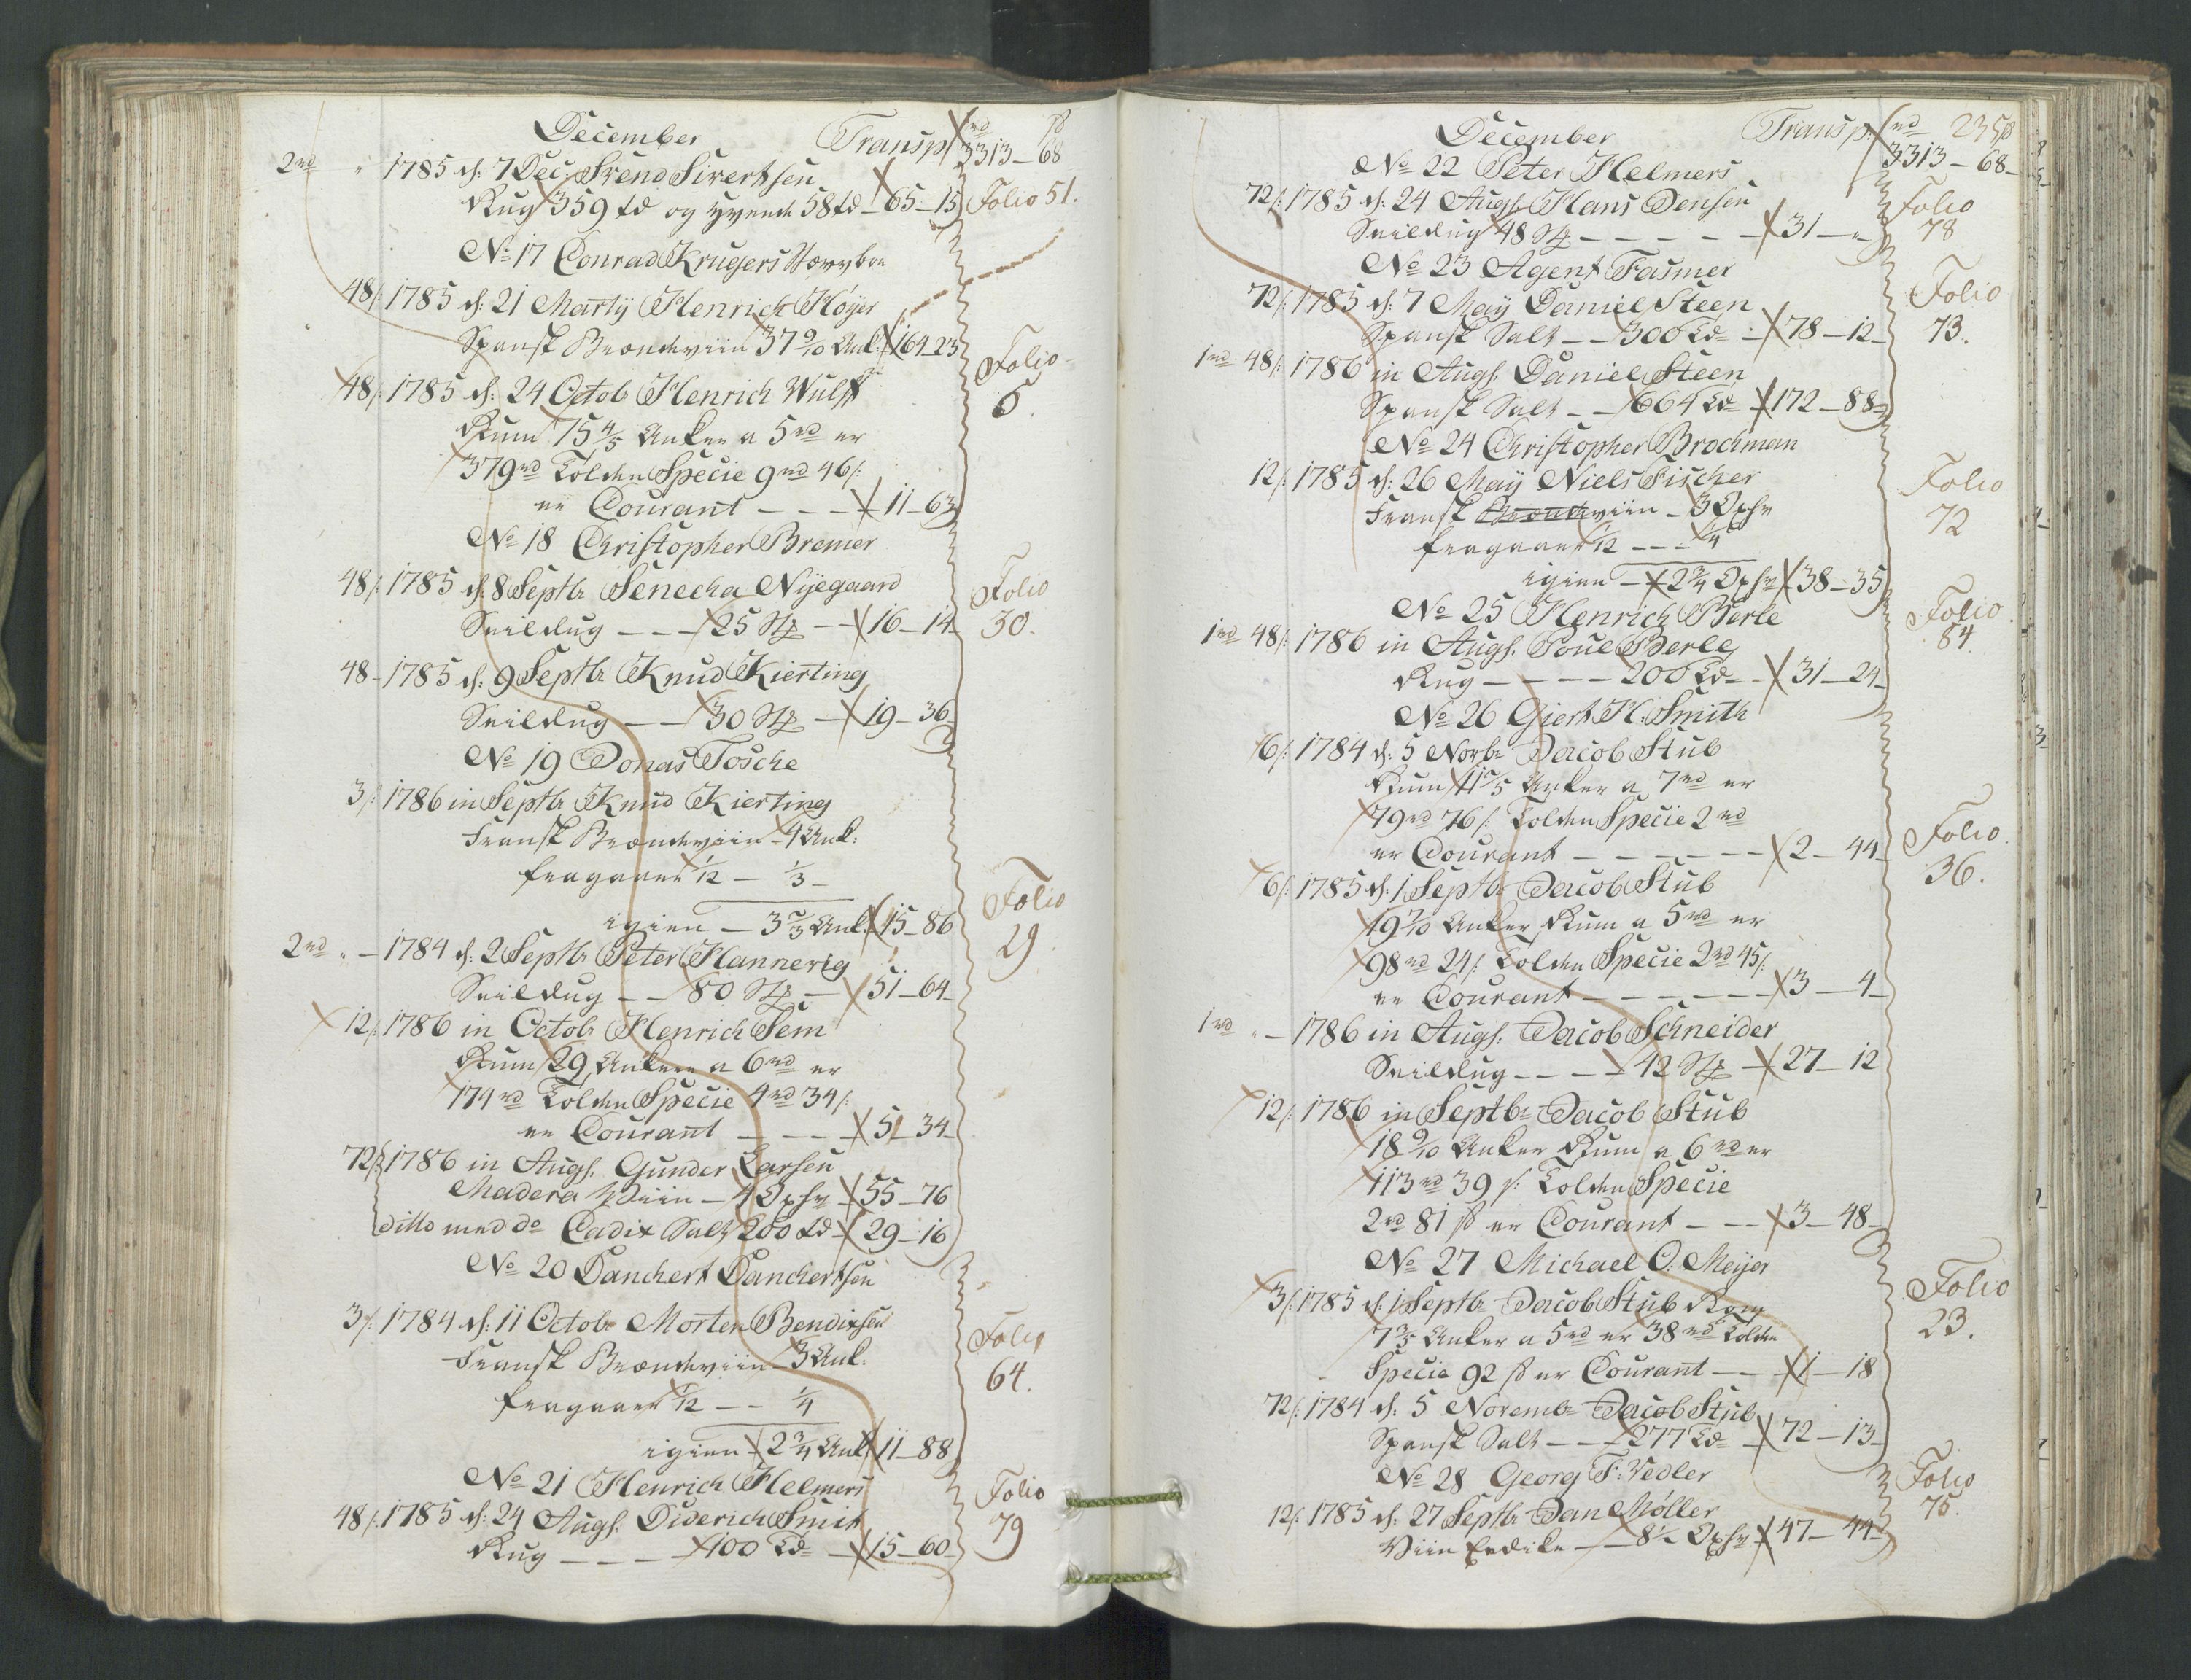 December Transp rd ß
3313 - 68
2rd " 1785 d: 7 Dec: Svend Sivertsen
Rug 359 td og 58 td - 65 - 15 Folio 51.
No 17 Conrad Krugers
48/: 1785 d: 21 Martij Henrich Höyer
Spansk Brændeviin 37 9/10 Ank: 164 - 23
Folio
6.
48/: 1785 d: 24 Octob Henrich Wulff
Rum 75 4/5 Anker a 5rd er
379rd Tolden Specie 9rd 46/:
er Courant - - - 11 - 63
No 18 Christopher Bremer
48/: 1785 d: 8 Septbr Senecha Nÿegaard Folio
Seildug - - - 25 - - 16 - 14 30.
48 - 1785 d: 9 Septbr Knud Kierting
Seildug - - 30 - 19 - 36
No 19 Jonas Tosche
3/: 1786 in Septbr Knud Kierting
Fransk Brændeviin - 4 Ank:
fragaaer 1/12 - 1/3 -
igien - 3 2/3 Ank: 45 - 86 Folio
29
2rd " - 1784 d: 2 Septbr Peter Hannerig
Seildug - - 80 - 51 - 64 -
12/: 1786 in Octob Henrich Sem
Rum 29 Ankere a 6rd er
174rd Tolden Specie 4rd 34/:
er Courant - - - 5 - 34 -
72/: 1786 in Augs. Gunder Larsen
Madera Viin - 4 Oxhr 55 - 76
ditto med do Cadix Salt 200 td 29 - 16
No 20 Danchert Danchertsen
3/: 1784 d: 11 Octobr Morten Bendixsen Folio
64.
Fransk Brændeviin - 3 Ank:
fragaaer 1/12 - - 1/4
igien 2 3/4 Ank 11 - 88
No 21 Henrich Helmers Folio
79
48/: 1785 d: 24 Augs. Diderich Smit
Rug - - - - 100 Td - 15 - 60
December Transp: rd 235 ß
3313 - 68 -
No 22 Peter Helmers
72/: 1785 d: 24 Augs. Hans Jensen Folio
78
Seildug 48 - - - - - 31 - "
No 23 Agent Fasmer
72/: 1785 d: 7 May Daniel Steen Folio
73.
Spansk Salt - - 300 Td - 78 - 12 -
1rd 48/: 1786 in Augs. Daniel Steen
Spansk Salt - - 664 Td - 172 - 88
No 24 Christopher Brochman
12/: 1785 d: 26 Maÿ Niels Fischer Folio
72
Fransk Brændeviin - 3 Oxhr
fragaaer 1/12 - - - 1/4
igien - 2 3/4 Oxhr 38 - 35
No 25 Henrich Berle Folio
84
1rd 48/: 1786 in Augs. Poul Berle
Rug - - - - 200 Td - 31 - 24
No 26 Giert H: Smith
6/: 1784 d: 5 Novbr Jacob Stub
Rum 11 2/5 Anker a 7rd er
79rd 76/: Tolden Specie 2rd
er Courant - - - - - - 2 - 44 Folio
36.
6/: 1785 d: 1 Septbr Jacob Stub
19 7/10 Anker Rum a 5rd er
98rd 24/: Tolden Specie 2rd 45/:
er Courant - - - - - - 3 - 4 -
1rd " - 1786 in Augs. Jacob Schneider
Seildug - - - - 42 - 27 - 12
12/: 1786 in Septbr Jacob Stub
18 9/10 Anker Rum a 6rd er
113rd 39/: Tolden Specie
2rd 81 ß er Courant - - - 3 - 48 -
No 27 Michael O. Meÿer
3/: 1785 d: 1 Septbr Jacob Stub Folio
23.
7 3/5 Anker a 5rd er 38rd Tolden
Specie 92 ß er Courant - - 1 - 18
72/: 1784 d: 5 Novembr Jacob Stub
Spansk Salt - - 277 Td - 72 - 13 -
No 28 Georg F: Vedler Folio
75.
12/: 1785 d: 27 Septbr Jan Möller
Viin Eddike - - 8 1/2 Oxhr 47 - 44 -